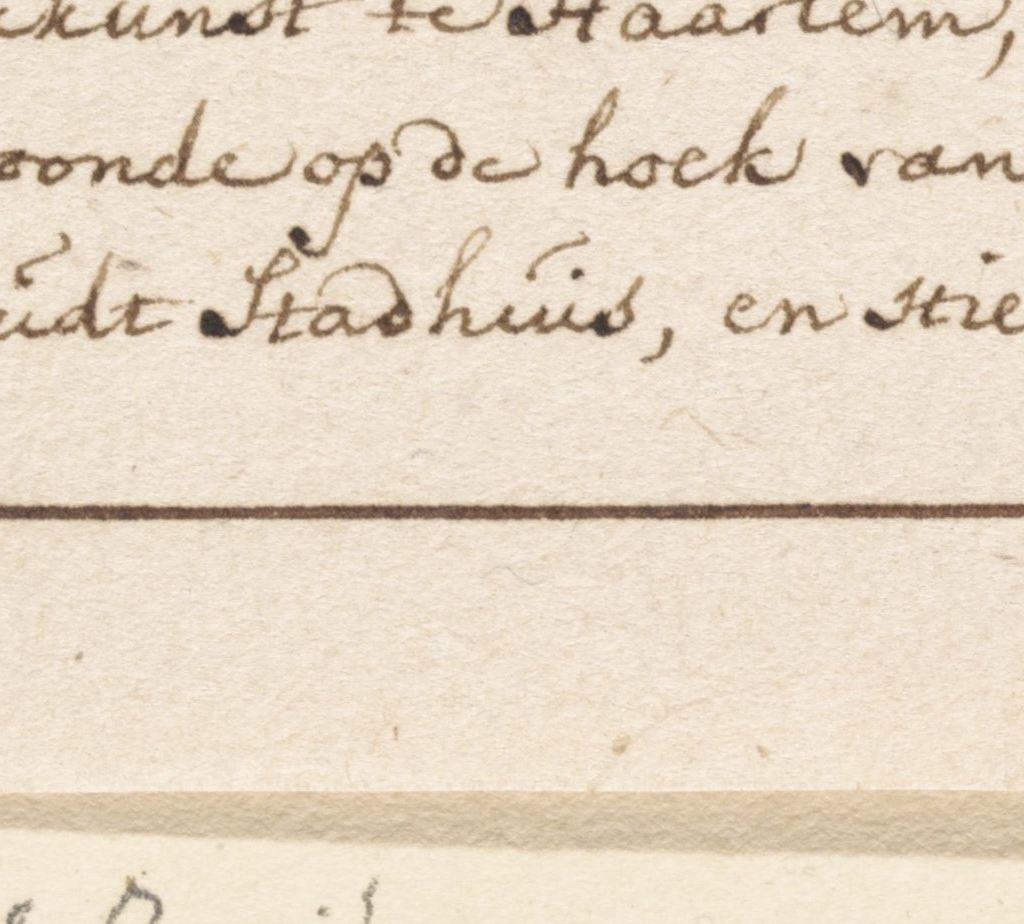 ekunst te Haarlem,
oonde op de hoek van
uidt Stadhuis, en stie